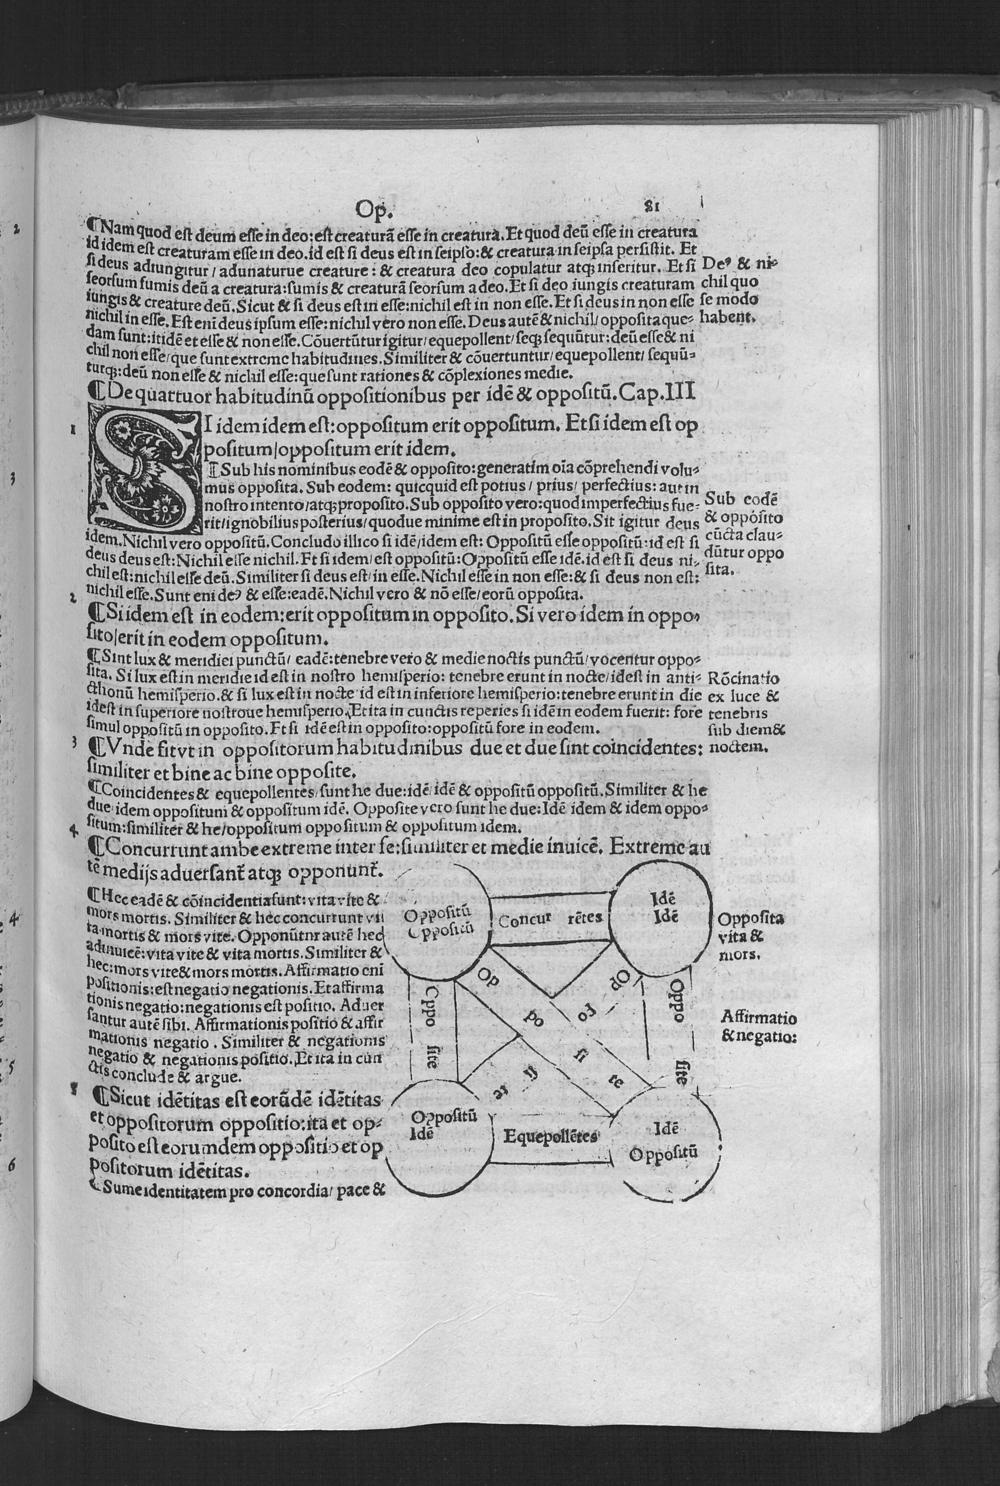 Op. 81
¶Nam quod est deum esse in deo: est creaturã esse in creatura. Et quod deũ esse in creatura
id idem est creaturam esse in deo. id est si deus est in seipso: & creatura in seipsa persistit. Et
si deus adiungitur / adunaturue creature: & creatura deo copulatur atqꝫ inseritur. Et si
seorsum sumis deũ a creatura: sumis & creaturã seorsum a deo. Et si deo iungis creaturam
iungis & creature deũ. Sicut & si deus est in esse: nichil est in non esse. Et si deus in non esse
nichil in esse. Est eni deus ipsum esse: nichil vero non esse. Deus autẽ & nichil / opposita que-
dam sunt: itidẽ et esse & non esse. Cõuertũtur igitur / equepollent / seqꝫ sequũtur: deũ esse & ni
chil non esse / que sunt extreme habitudines. Similiter & cõuertuntur / equepollent / sequũ-
turqꝫ: deũ non esse & nichil esse: que sunt rationes & cõplexiones medie.
Deꝰ & ni-
chil quo
se modo
habent.
¶De quattuor habitudinũ oppositionibus per idẽ & oppositũ. Cap. III
1 SI idem idem est: oppositum erit oppositum. Et si idem est op
positum / oppositum erit idem.
¶Sub his nominibus eodẽ & opposito: generatim oĩa cõprehendi volu-
mus opposita. Sub eodem: quicquid est potius / prius / perfectius: aut in
nostro intento / atqꝫ proposito. Sub opposito vero: quod imperfectius fue-
rit / ignobilius posterius / quodue minime est in proposito. Sit igitur deus
idem. Nichil vero oppositũ. Concludo illico si idẽ / idem est: Oppositũ esse oppositũ: id est si
deus deus est: Nichil esse nichil. Et si idem / est oppositũ: Oppositũ esse idẽ. id est si deus ni-
chil est: nichil esse deũ. Similiter si deus est / in esse. Nichil esse in non esse: & si deus non est:
nichil esse. Sunt eni deꝰ & esse: eadẽ. Nichil vero & nõ esse / eorũ opposita.
Sub eodẽ
& opposito
cũcta clau-
dũtur oppo
sita.
2 ¶Si idem est in eodem: erit oppositum in opposito. Si vero idem in oppo-
sito / erit in eodem oppositum.
¶Sint lux & meridiei punctũ / eadẽ: tenebre vero & medie noctis punctũ / vocentur oppo-
sita. Si lux est in meridie id est in nostro hemisperio: tenebre erunt in nocte / idest in anti-
cthonũ hemisperio. & si lux est in nocte id est in inferiore hemisperio: tenebre erunt in die
idest in superiore nostroue hemisperio. Et ita in cunctis reperies si idẽ in eodem fuerit: fore
simul oppositũ in opposito. Et si idẽ est in opposito: oppositũ fore in eodem.
Rõcinatio
ex luce &
tenebris
sub diem &
noctem.
3 ¶Vnde fit vt in oppositorum habitudinibus due et due sint coincidentes:
similiter et bine ac bine opposite.
¶Coincidentes & equepollentes sunt he due: idẽ idẽ & oppositũ oppositũ. Similiter & he
due idem oppositum & oppositum idẽ. Opposite vero sunt he due: Idẽ idem & idem oppo-
situm: similiter & he / oppositum oppositum & oppositum idem.
4 ¶Concurrunt ambe extreme inter se: similiter et medie inuicẽ. Extreme au
tẽ medijs aduersant̃ atqꝫ opponunt̃.
¶Hec eadẽ & cõincidentia sunt: vita vite &
mors mortis. Similiter & hec concurrunt vi
ta mortis & mors vite. Opponũtur autẽ hec
adinuicẽ: vita vite & vita mortis. Similiter &
hec: mors vite & mors mortis. Affirmatio eni
positionis: est negatio negationis. Et affirma
tionis negatio: negationis est positio. Aduer
santur autẽ sibi. Affirmationis positio & affir
mationis negatio. Similiter & negationis
negatio & negationis positio. Et ita in cun
ctis conclude & argue.
Opposita
vita &
mors.
Affirmatio
& negatio:
5 ¶Sicut idẽtitas est eorũdẽ idẽtitas
et oppositorum oppositio: ita et op-
posito est eorumdem oppositio et op
positorum idẽtitas.
¶Sume identitatem pro concordia / pace &
Oppositũ
Oppositũ
Concurrẽtes
Idẽ
Idẽ
Opposite
Opposite
Oppositæ
Opposite
Oppositũ
Idẽ
Equepollẽtes
Idẽ
Oppositũ
2
3
4
5
6